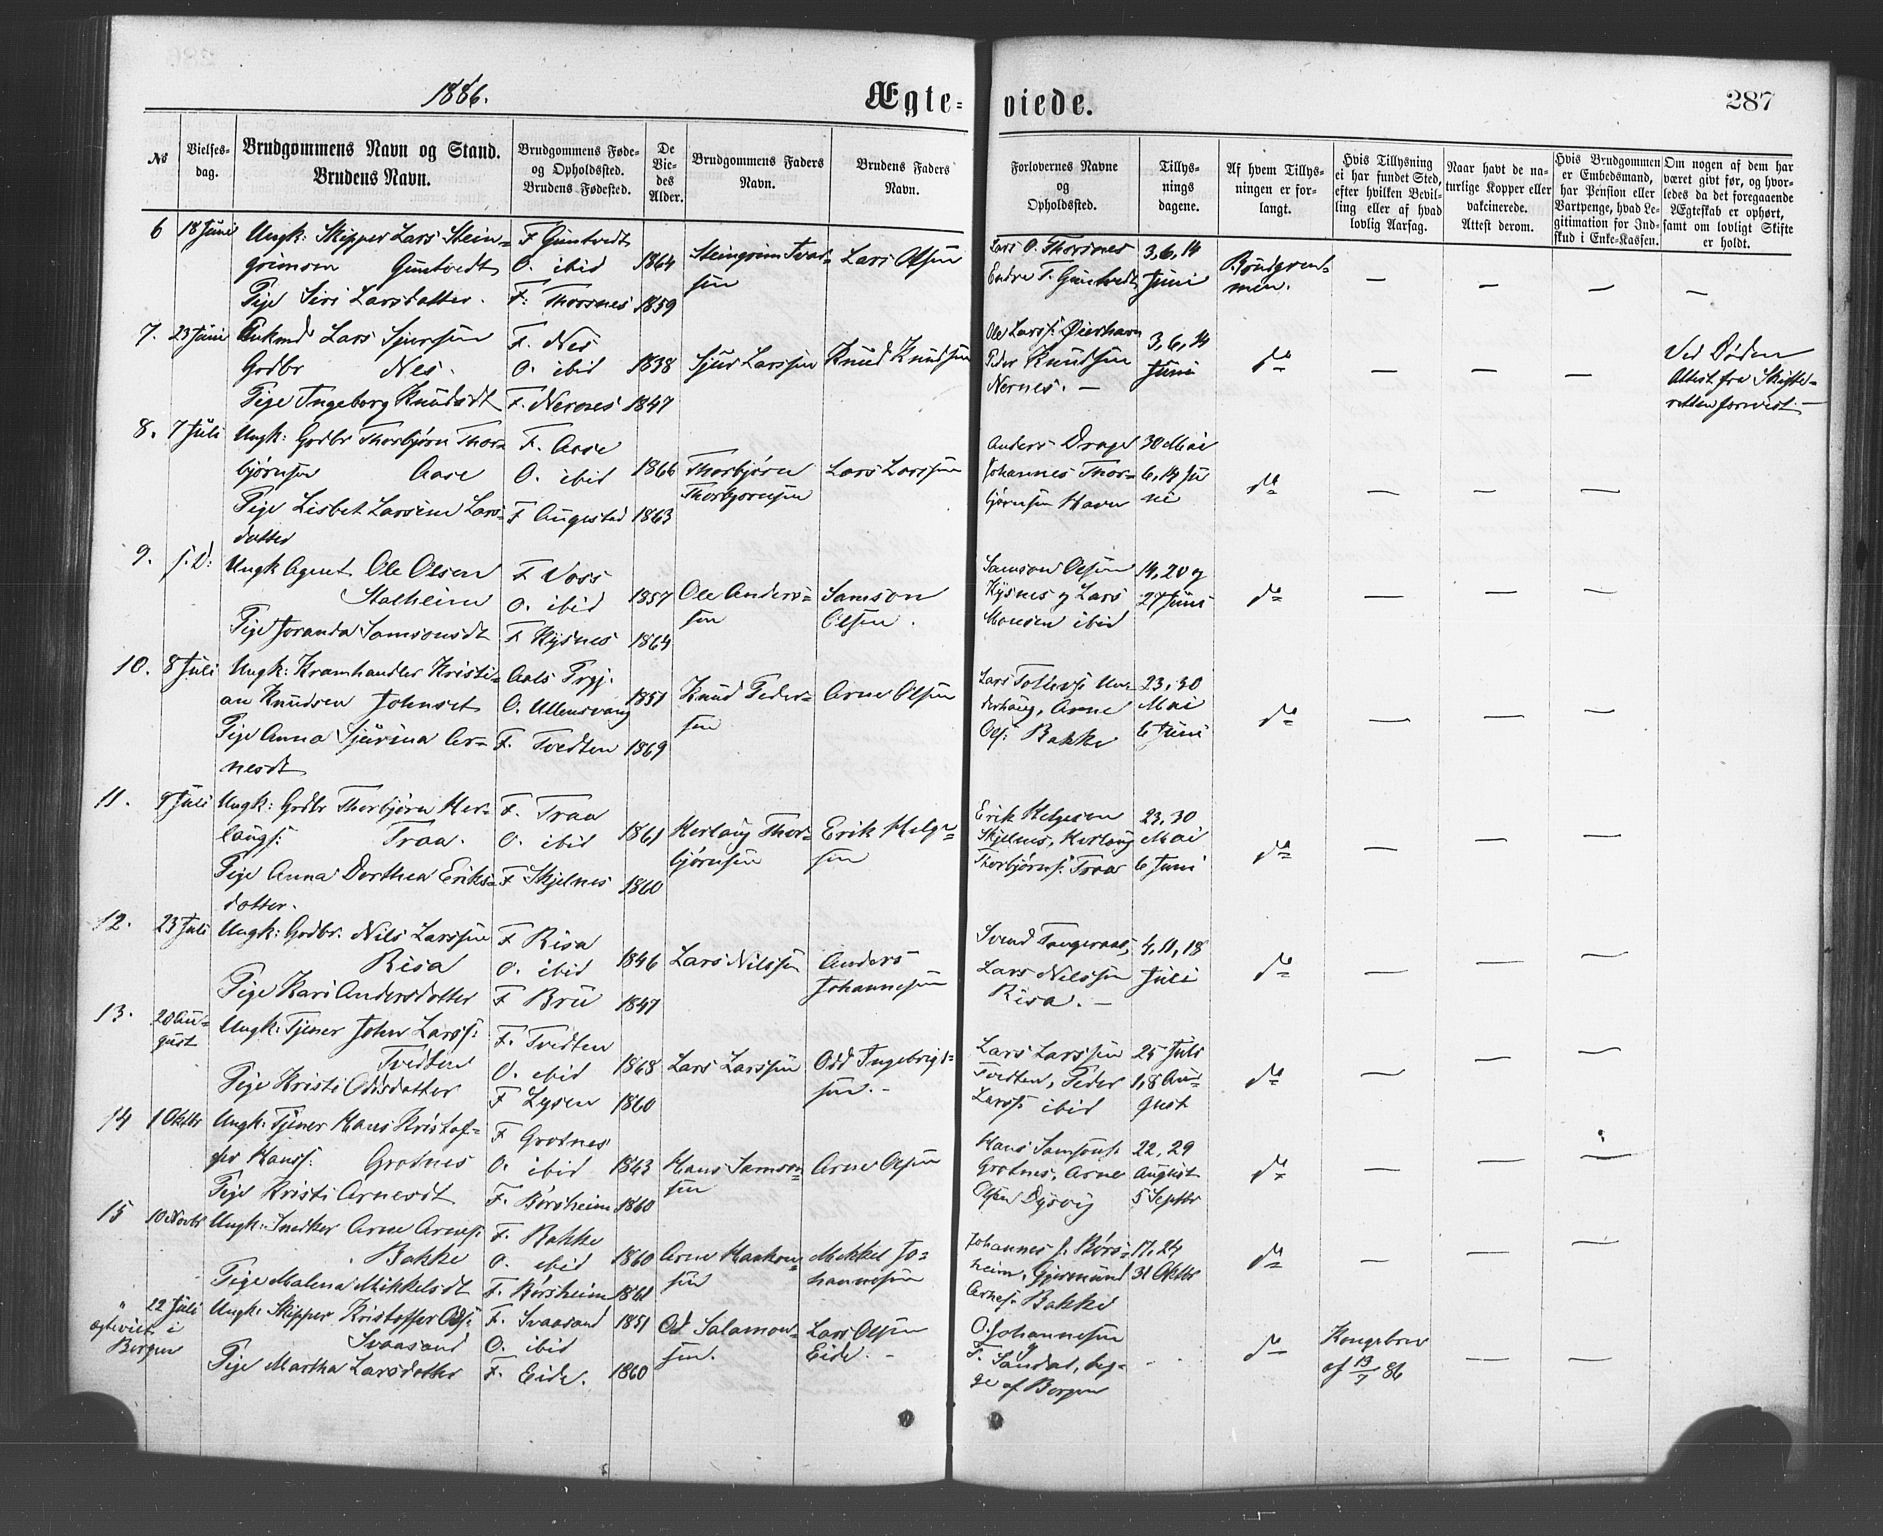 1886.
Ægte-
viede.
287
No
Vielses-
dag.
Brudgommens Navn og Stand.
Brudens Navn.
Brudgommens Føde-
og Opholdssted.
Brudens Fødested.
De
Vie-
des
Alder.
Brudgommens Faders
Navn.
Brudens Faders
Navn.
Forlovernes Navne
og
Opholdssted.
Tillys-
nings
dagene.
Af hvem Tillys-
ningen er for-
langt.
Hvis Tillysning
ei har fundet Sted,
efter hvilken Bevil-
ling eller af hvad
lovlig Aarsag.
Naar havt de na-
turlige Kopper eller
vakcinerede.
Attest derom.
Hvis Brudgommen
er Embedsmand,
har Pension eller
Vartpenge, hvad Le-
gitimation for Ind-
skud i Enke-Kassen.
Om nogen af dem har
været givt før, og hvor-
ledes da det foregaaende
Ægteskab er ophørt,
samt om lovligt Skifte
er holdt.
6 18 Juni Ungk: Skipper Lars Stein-
grimsen Guntvedt
Pige Siri Larsdatter.
F. Guntvedt
O. ibid 1864
F: Thorsnes 1859
Steingrim Ivar-
sen
Lars Olsen
Lars O. Thorsnes
Endre T. Guntvedt
3, 6, 14
Juni
Brudgom-
men.
7. 23 Juni Enkmd Lars Sjursen
Gdbr Nes.
Pige Ingeborg Knudsdt
F. Nes
O. ibid 1838
F. Nernes 1847
Sjur Larssen
Knud Knudsen
Ole Larss: Øierhavn
Peder Knudsen
Nernes. —
3, 6, 14
Juni
do
Ved Døden
Attest fra Skifte-
retten forevist. —
8. 7 Juli Ungk: Gdbr Thorbjørn Thor-
bjørnsen Aase
Pige Lisbet Larsine Lars-
datter
F. Aase
O. ibid 1866
F Augestad 1863
Thorbjørn
Thorbjørnsen
Lars Larssen
Anders Drage
Johannes Thor-
bjørnsen Havn
30 Mai
6, 14 Ju
ni
do
9. s. D: Ungk Agent Ole Olsen
Stalheim
Pige Joranda Samsonsdt
F Voss
O. ibid 1857
F Kysnes 1864
Ole Anders-
sen
Samson
Olsen.
Samson Olsen
Kysnes og Lars
Monsen ibid
14, 20 og
27 Juni
do
10. 8 Juli Ungk: Kramhandler Kristi-
an Knudsen Johnset
Pige Anna Sjurina Ar-
nesdt
Aals Prgj.
O. Ullensvang 1851
F. Tvedten 1869
Knud Peder-
sen
Arne Olsen
Lars Tollevs: Un-
derhaug, Arne
Ols: Bakke
23, 30
Mai
6 Juni
do
11. 9 Juli Ungk: Gdbr Thorbjørn Her-
laugs: Traa.
Pige Anna Dorthea Eriks-
datter.
F. Traa
O. ibid 1861
F Skjelnes 1860
Herlaug Thor-
bjørnsen
Erik Helge-
sen
Erik Helgesen
Skjelnes, Herlaug
Thorbjørns: Traa
23, 30
Mai
6 Juni
do
12. 23 Juli Ungk: Gdbr. Nils Larssen
Risa
Pige Kari Andersdatter
F Risa
O. ibid 1846
F Bru 1847
Lars Nilssen
Anders
Johannesen
Svend Tangeraas,
Lars Nilssen
Risa. —
4, 11, 18
Juli
do
13. 20 Au-
gust
Ungk: Tjener John Larss:
Tvedten
Pige Kristi Odsdatter
F. Tvedten
O. ibid 1868
F Lysen 1860
Lars Larssen
Odd Ingebrigt-
sen. -
Lars Larssen
Tvedten, Peder
Larss: ibid
25 Juli
1, 8 Au-
gust
do
14 1 Oktbr Ungk: Tjener Hans Kristof-
fer Hanss: Grotnes
Pige Kristi Arnesdt
F Grotnes
O. ibid 1863
F. Børsheim 1860
Hans Samson-
sen
Arne Olsen
Hans Samsons:
Grotnes, Arne
Olsen Dysvig
22, 29
August
5 Septbr
do
15 10 Novbr Ungk: Snedker Arne Arnes:
Bakke
Pige Malena Mikkelsdt
F. Bakke
O. ibid 1860
F. Børsheim 1861
Arne Haakon-
sen
Mikkel Jo-
hannesen
Johannes J. Børs-
heim, Gjermund
Arnes: Bakke
17, 24
31 Oktbr
do
" 22 Juli
egteviet i
Bergen
Ungk: Skipper Kristoffer Ods:
Svaasand
Pige Martha Larsdatter
F. Svaasand 1851
O. ibid
F. Eide. 1860
Od Salamon-
sen.
Lars Olsen
Eide. -
O. Johannesen
og
F. Sandal, beg-
ge af Bergen
do
Kongebrev
af 13/7 86